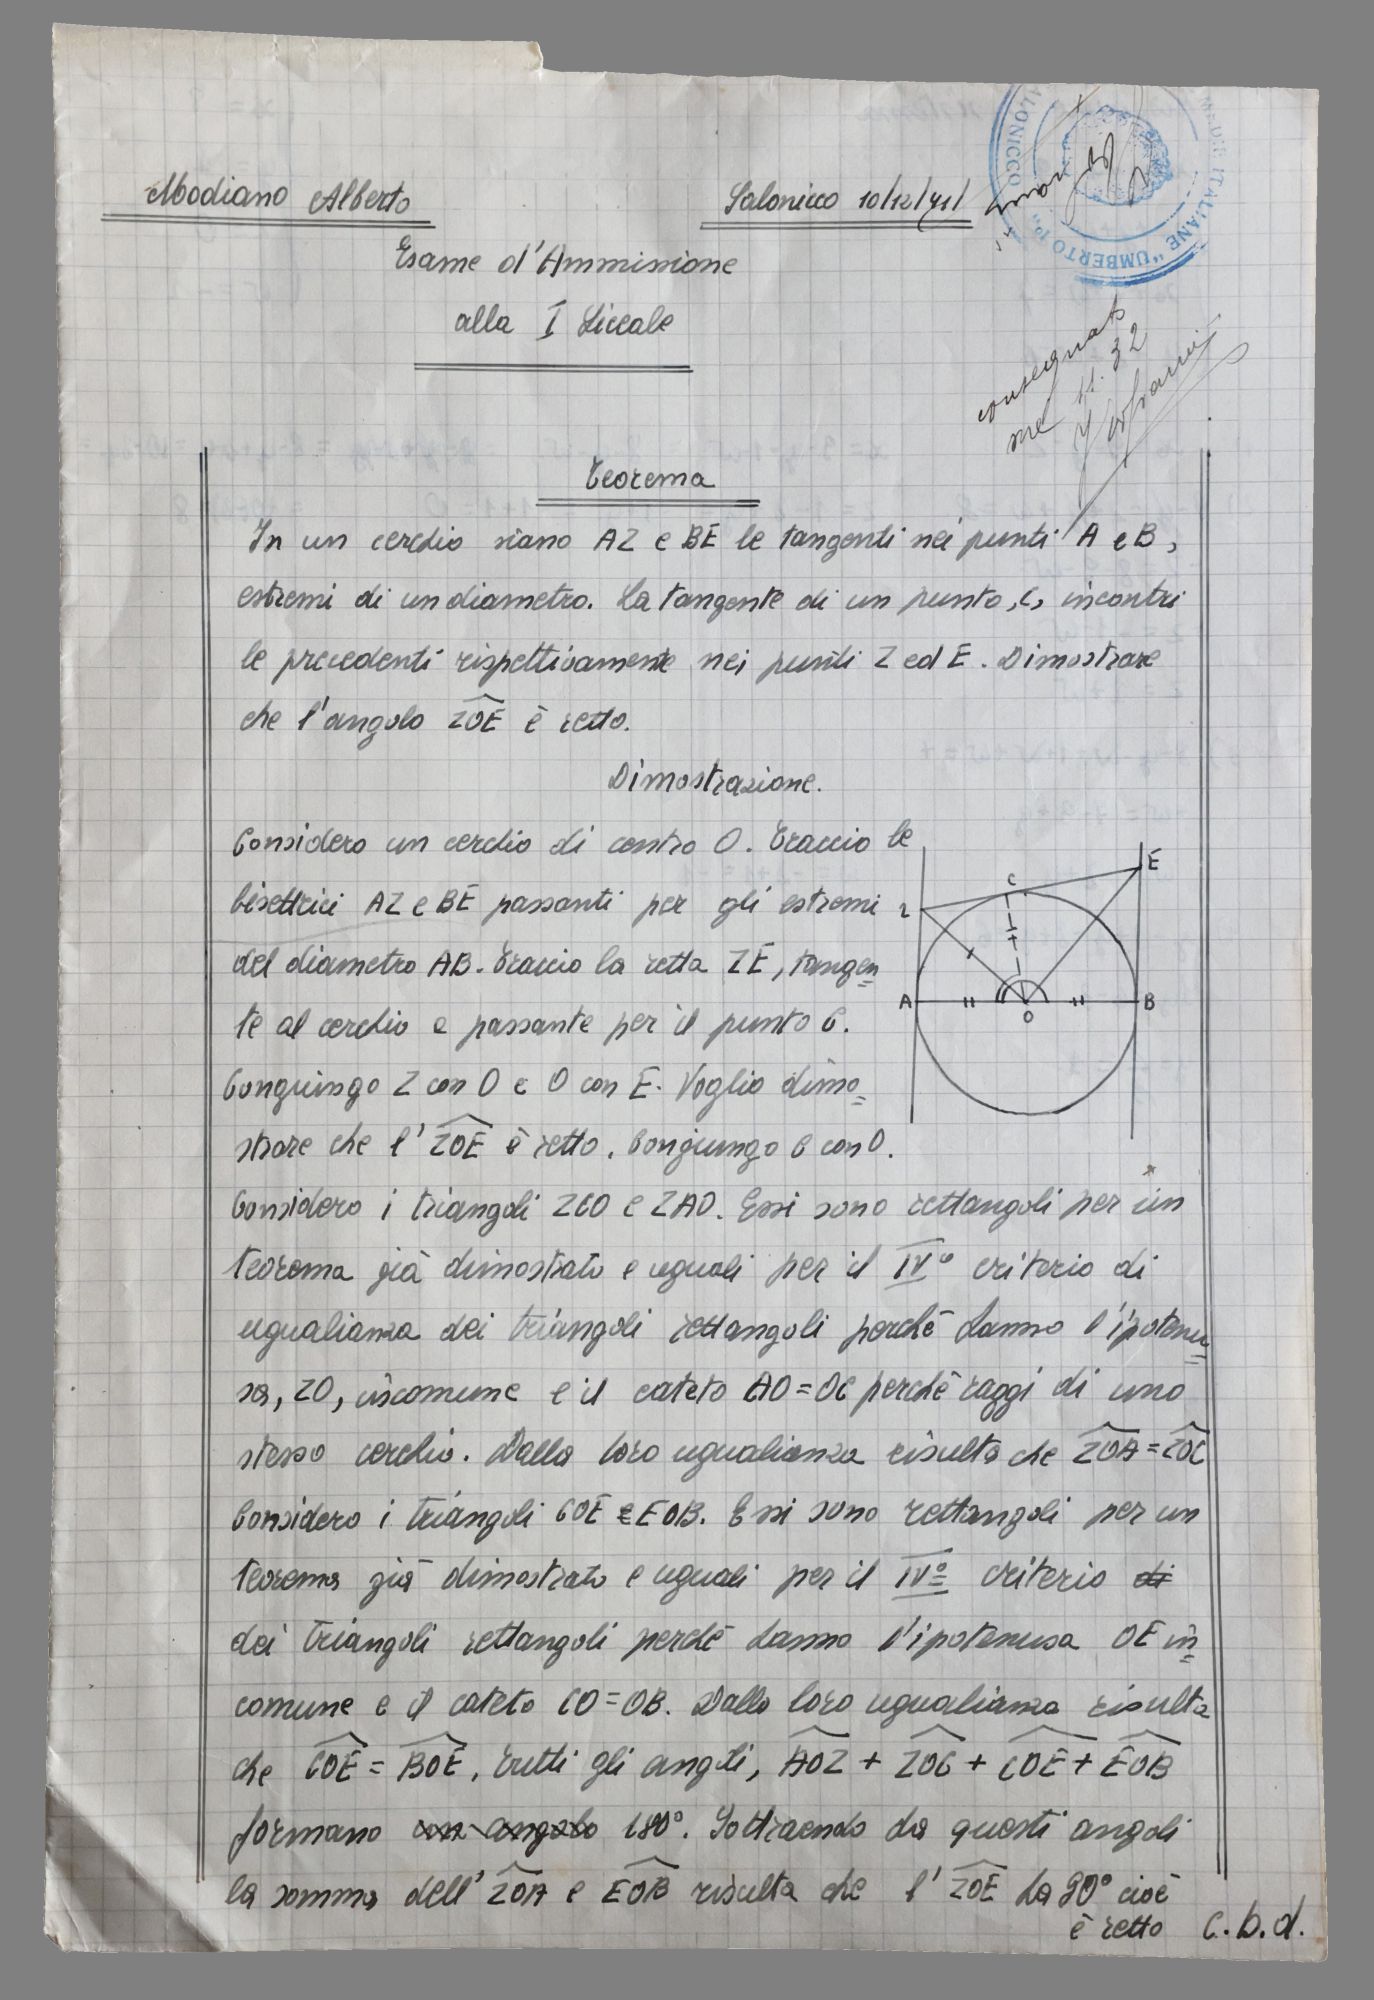 Modiano Alberto
Salonicco 10/12/41/
MEDIE ITALIANE "UMBERTO I°"
SALONICCO
Esame d'Ammissione
alla I Liceale
consegnato
ore 11.32
Teorema
In un cerchio siano AZ e BE le tangenti nei punti A e B,
estremi di un diametro. La tangente di un punto, C, incontri
le precedenti rispettivamente nei punti Z ed E. Dimostrare
che l'angolo ZOE è retto.
Dimostrazione.
Considero un cerchio di centro O. Traccio le
bisettrici AZ e BE passanti per gli estremi
del diametro AB. Traccio la retta ZE, tangen=
te al cerchio e passante per il punto C.
Congiungo Z con O e O con E. Voglio dimo=
strare che l'ZOE è retto. Congiungo C con O.
Z
C
E
A
O
B
Considero i triangoli ZCO e ZAO. Essi sono rettangoli per un
teorema già dimostrato e uguali per il IV° criterio di
uguaglianza dei triangoli rettangoli perché hanno l'ipotenu=
sa, ZO, in comune e il cateto AO=OC perché raggi di uno
stesso cerchio. Dalla loro uguaglianza risulta che ZOA=ZOC
Considero i triangoli COE e EOB. Essi sono rettangoli per un
teorema già dimostrato e uguali per il IV° criterio di
dei triangoli rettangoli perché hanno l'ipotenusa OE in=
comune e il cateto CO=OB. Dalla loro uguaglianza risulta
che COE = BOE. Tutti gli angoli, AOZ + ZOC + COE + EOB
formano un angolo 180°. Sottraendo da questi angoli
la somma dell'ZOA e EOB risulta che l'ZOE ha 90° cioè
è retto c.b.d.